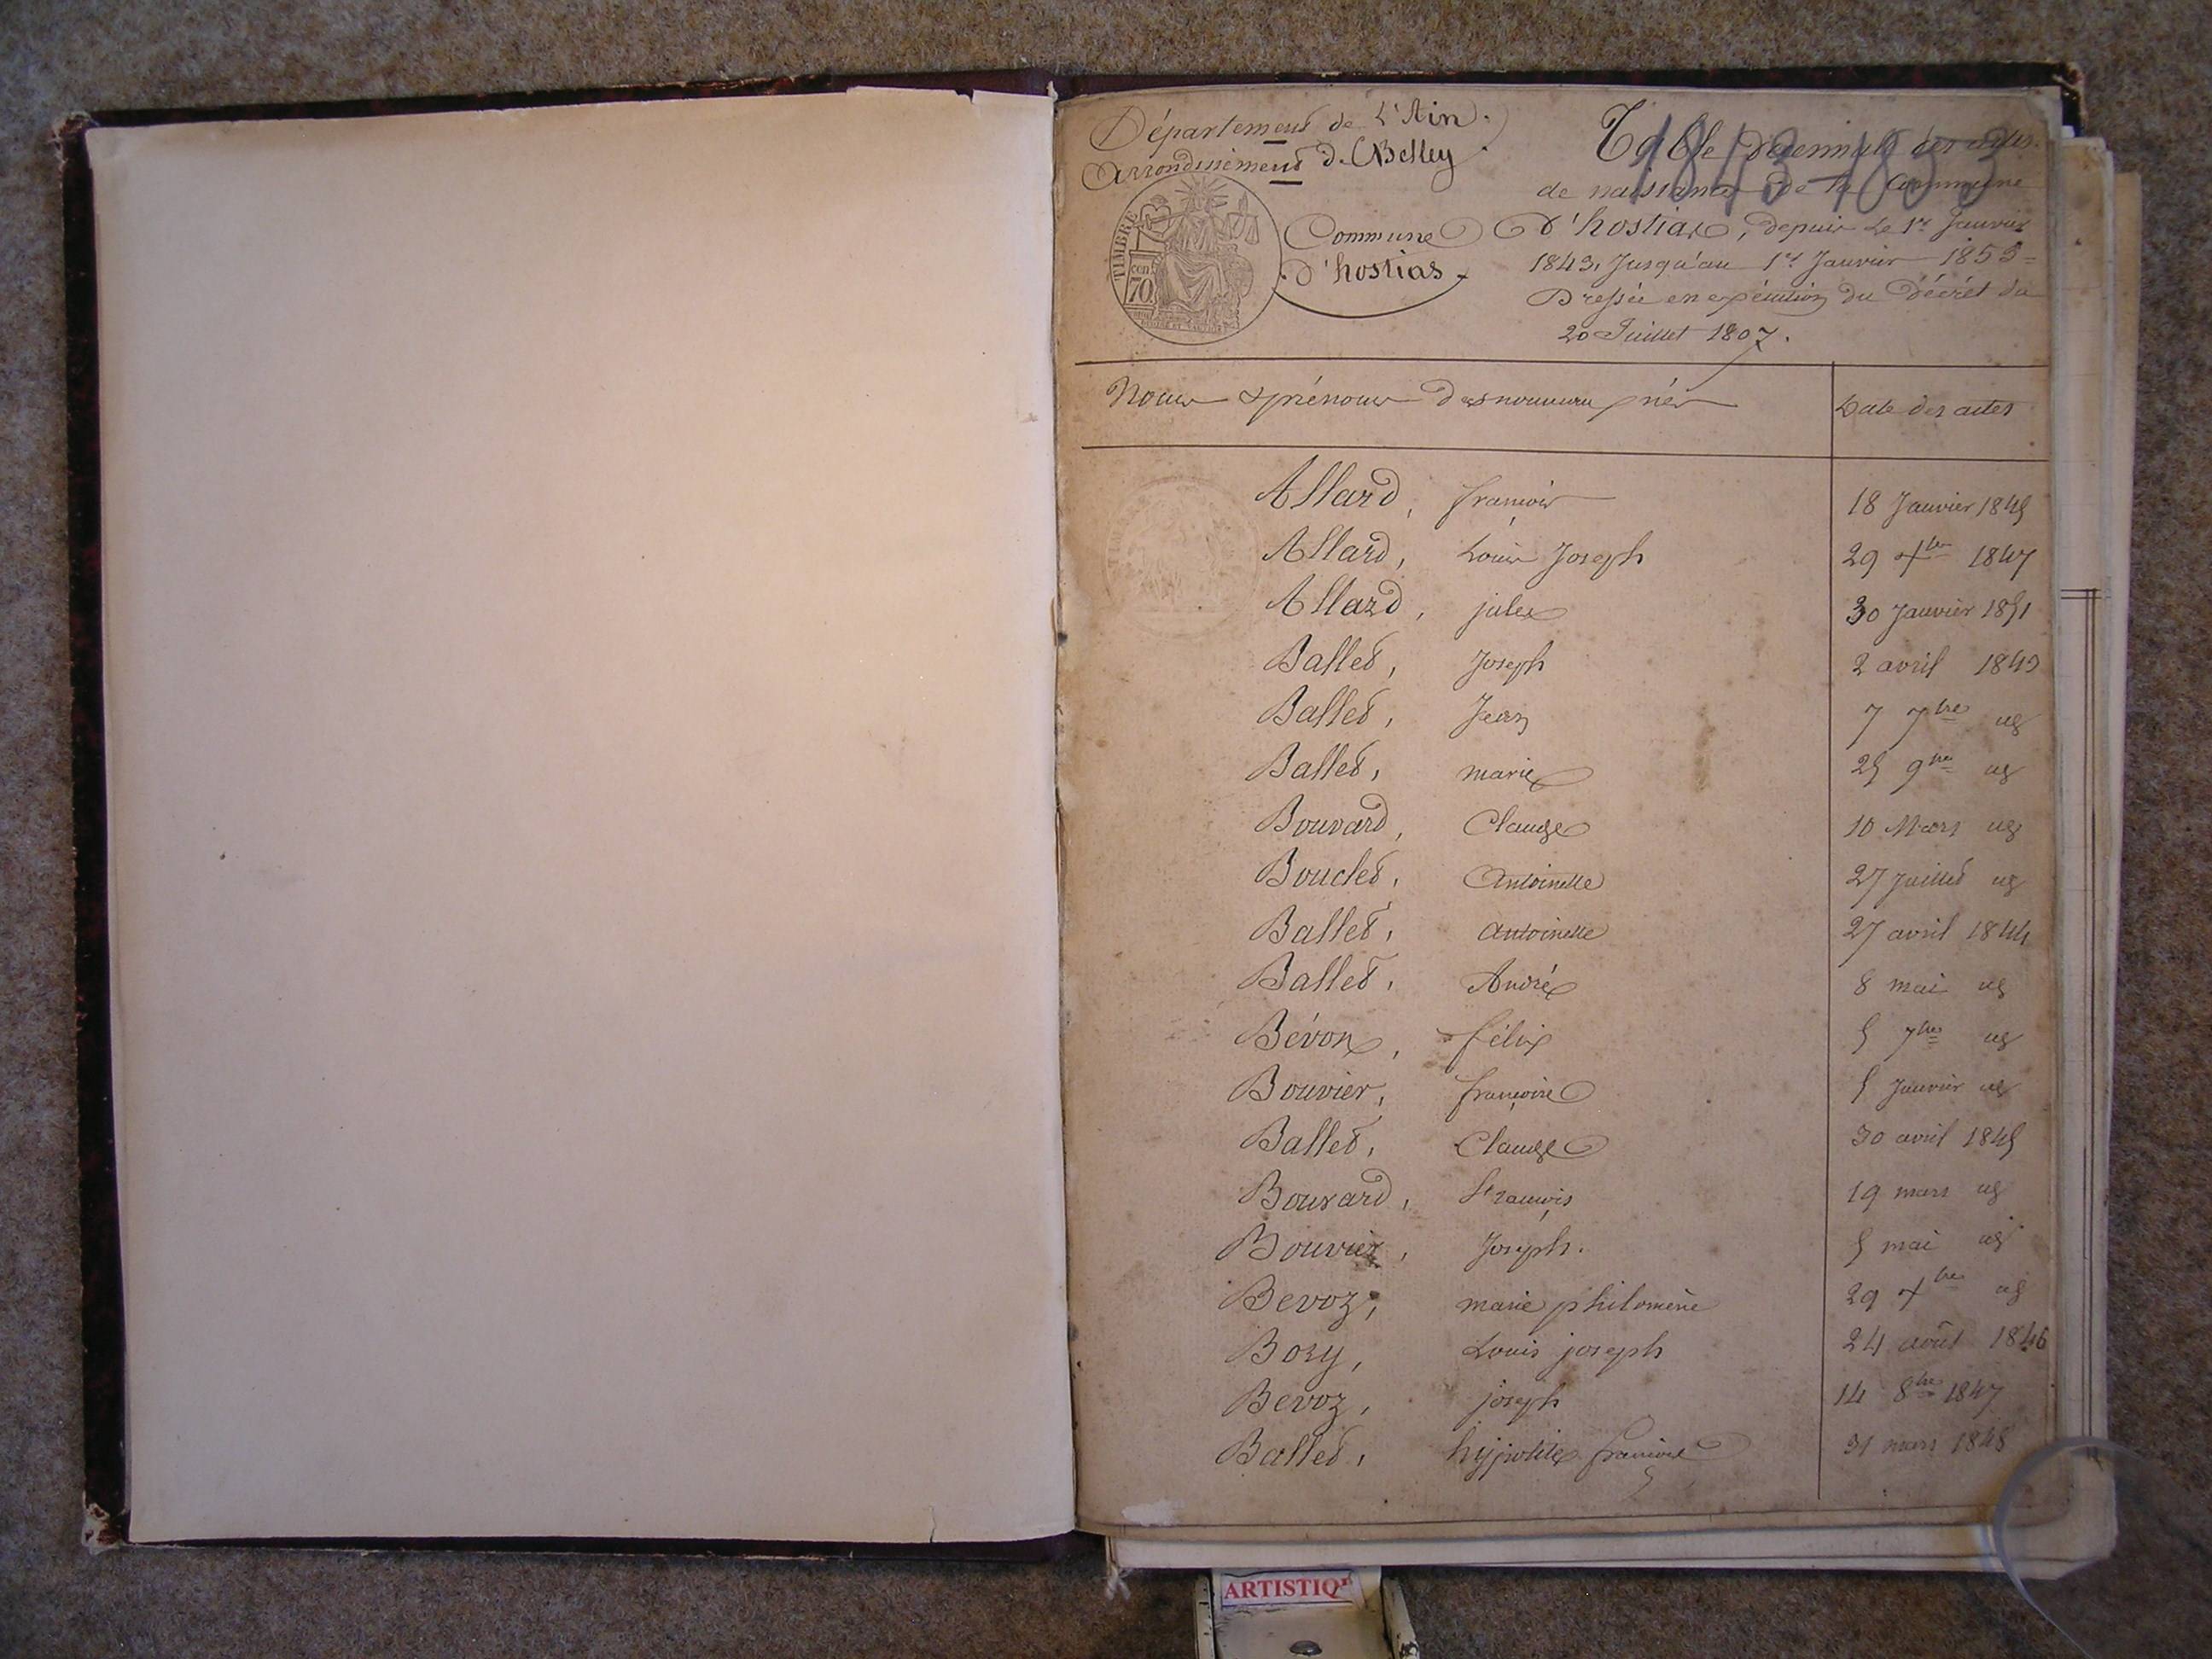 Département de L'Ain.
Arrondissement de Belley
TIMBRE
cen
70
Commune
d'hostias.
1843-1853
Table décennale des actes
de naissance de la Commune
d'hostias, depuis le 1er Janvier
1843, Jusqu'au 1er Janvier 1853
Dressée en exécution du Décret du
20 Juillet 1807.
Noms & prénoms des nouveau nés Date des actes
Allard, francois 18 Janvier 1845
Allard, Louis Joseph 29 Xbre 1847
Allard, jules 30 Janvier 1851
Ballet, Joseph 2 avril 1843
Ballet, Jean 7 7bre id
Ballet, marie 25 9bre id
Bouvard, Claude 10 Mars id
Bouclet, Antoinette 27 Juillet id
Ballet, antoinette 27 avril 1844
Ballet, André 8 mai id
Bévoz, félix 5 7bre id
Bouvier, françoise 5 Janvier id
Ballet, Claude 30 avril 1845
Bouvard, françois 19 mars id
Bouvier, Joseph. 5 mai id
Bevoz, marie philomène 29 Xbre id
Bozy, Louis joseph 24 août 1846
Bevoz, joseph 14 8bre 1847
Ballet, hyppolite françois 31 mars 1848
ARTISTIQ